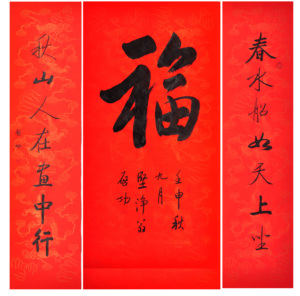 春水船如天上坐
福
壬申秋
九月
坚净翁
启功
秋山人在画中行